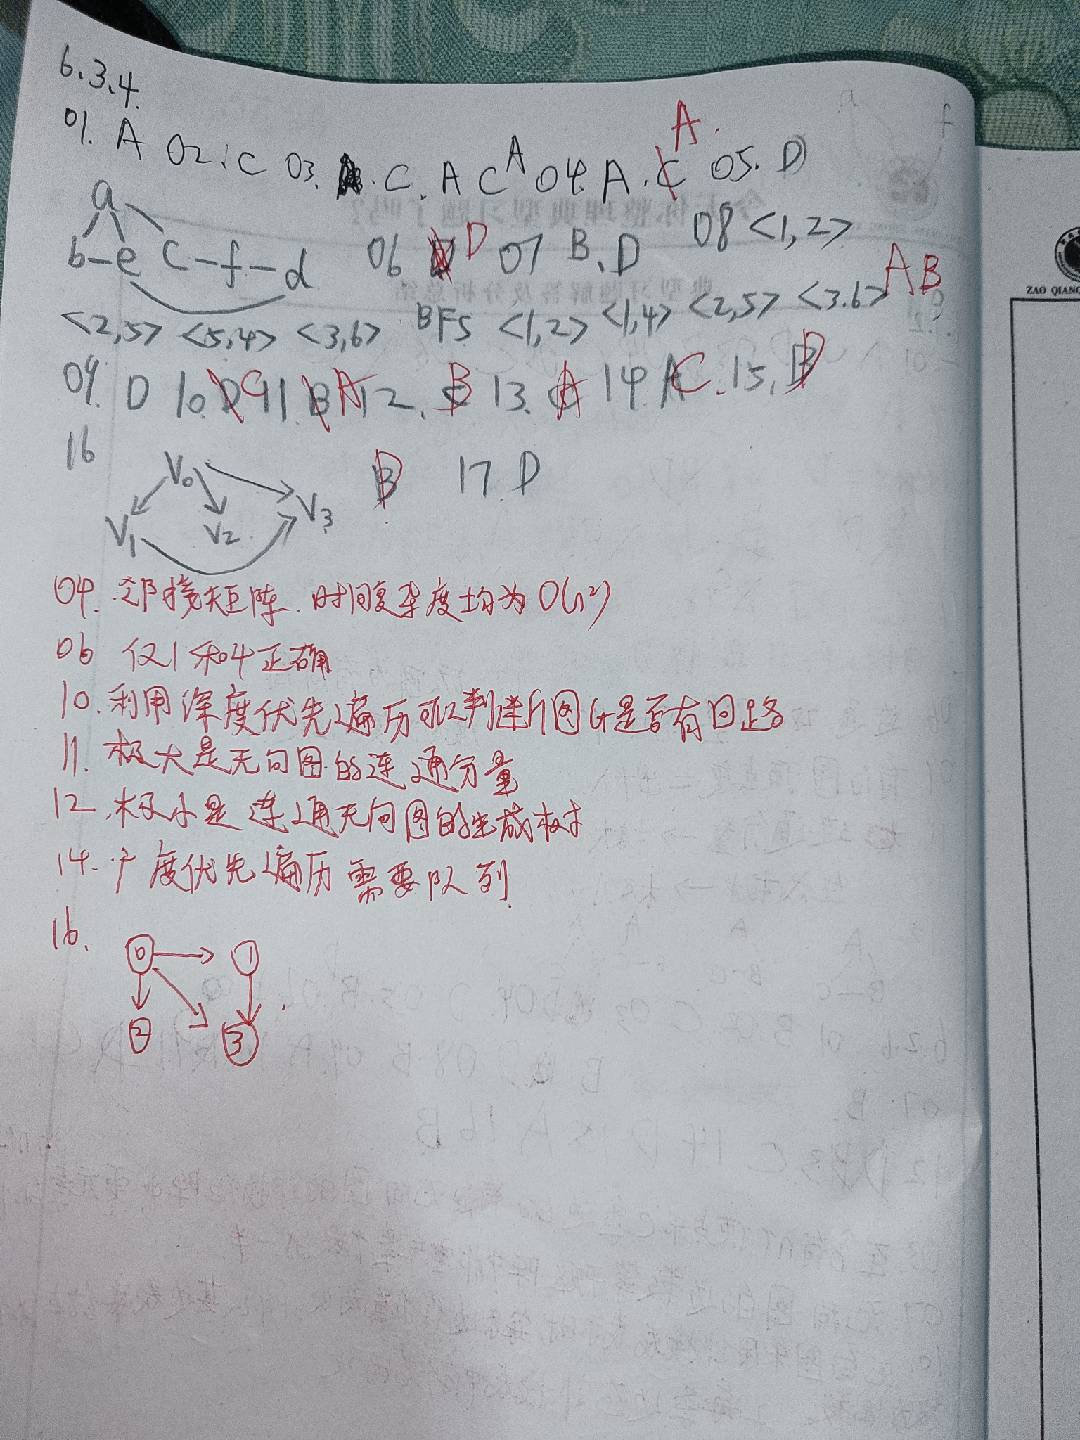 6.3.4.
01. A 02. C 03. C. A C A 04. A. C A. 05. D
a
b-e c-f-d 06 D 07 B. D 08 <1,2>
<2,5> <5,4> <3,6> BFS <1,2> <1,4> <2,5> <3.6> AB
09. D 10. D C 11. B A 12. B 13. A 14. A C. 15. B D
16 V0 B 17. D
V1 V2 V3
04. 邻接矩阵. 时间复杂度均为O(n²)
06 仅1和4正确
10. 利用深度优先遍历可以判断图G是否有回路
11. 极大是无向图的连通分量
12. 极小是连通无向图的生成树
14. 广度优先遍历需要队列
16. 0 1
2 3
ZAO QIANG